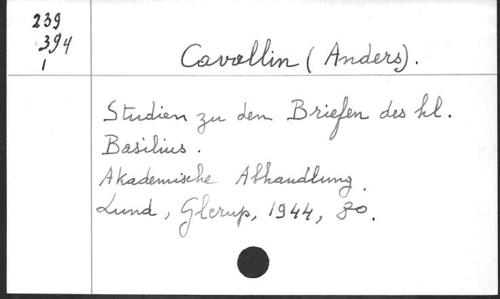 239
394
1
Cavallin (Anders).
Studien zu den Briefen des hl.
Basilius.
Akademische Abhandlung.
Lund, Glerup, 1944, 8o.